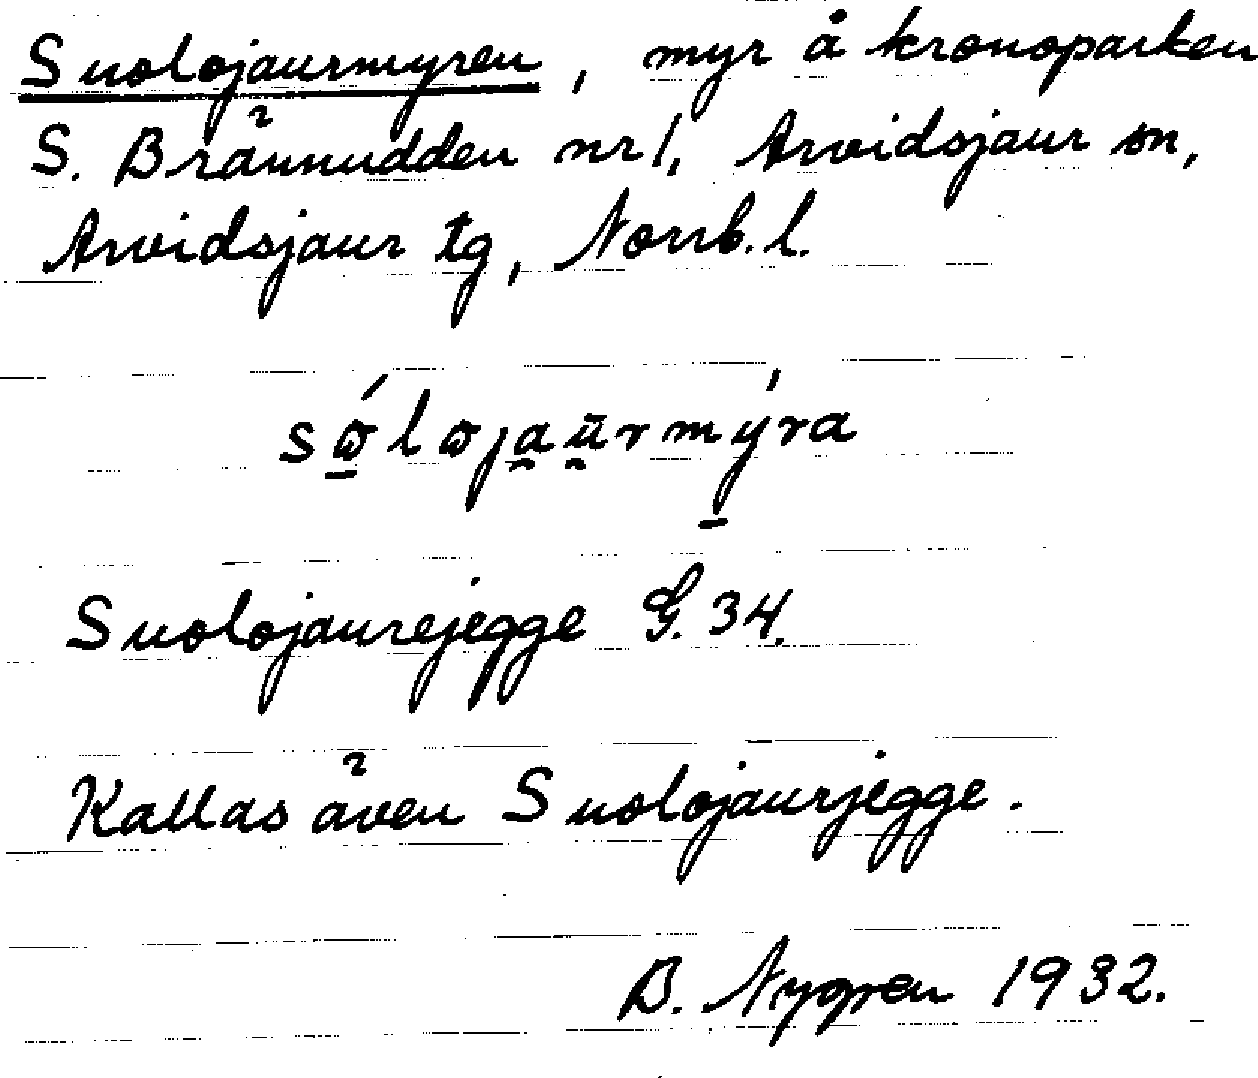 Suolojaurmyren, myr å kronoparken
S. Brännudden nr 1, Arvidsjaur sn,
Arvidsjaur tg, Norrb. l.
Suolojaurejegge G. 34.
Kallas även Suolojaurjegge.
B. Nygren 1932.